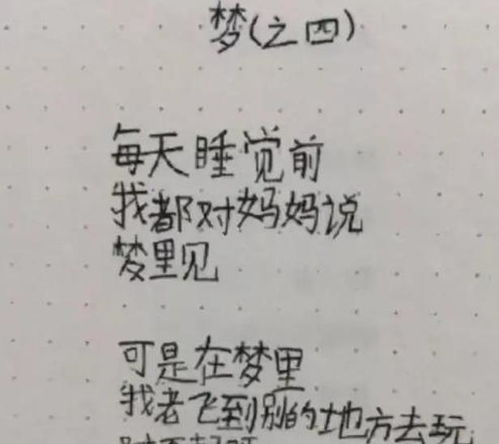 梦(之四)
每天睡觉前
我都对妈妈说
梦里见
可是在梦里
我老飞到别的地方去玩